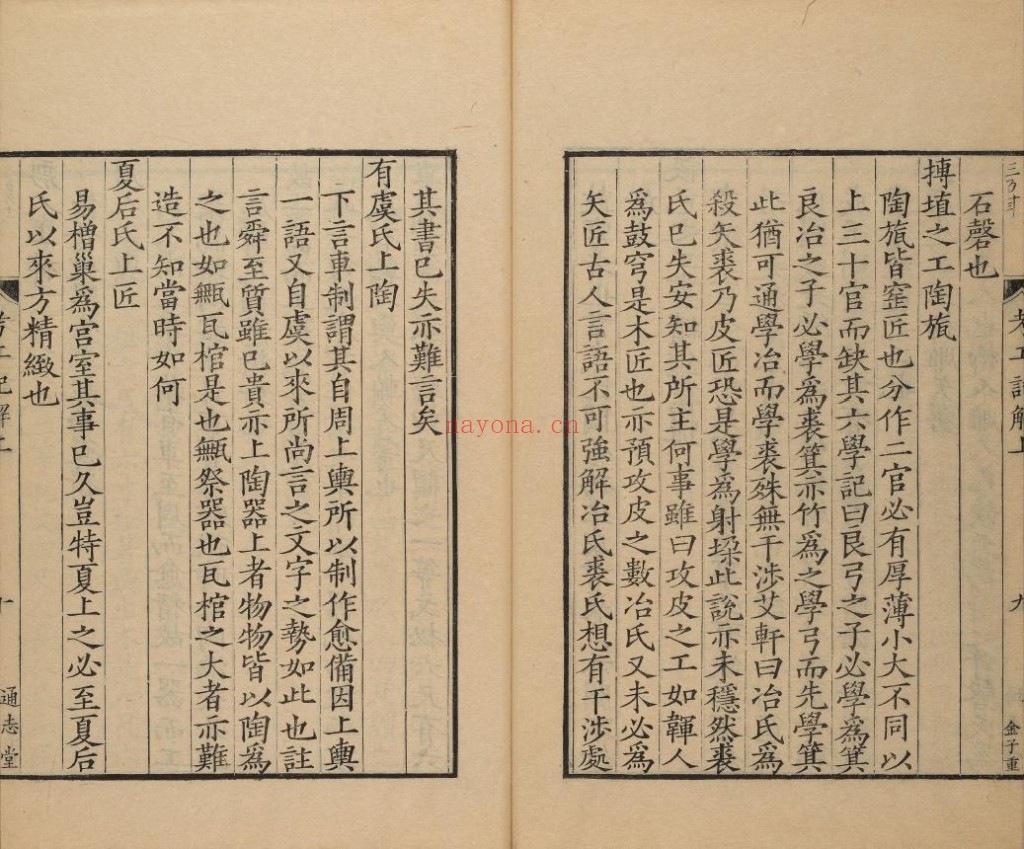 考工記解上
九
金子重
石磬也
搏埴之工陶瓬
陶瓬皆窑匠也分作二官必有厚薄小大不同以
上三十官而缺其六學記曰良弓之子必學為箕
良冶之子必學為裘箕亦竹為之學弓而先學箕
此猶可通學冶而學裘殊無干涉艾軒曰冶氏為
殺矢裘乃皮匠恐是學為射垜此說亦未穩然裘
氏已失安知其所主何事雖曰攻皮之工如韗人
為鼓穹是木匠也亦預攻皮之數冶氏又未必為
矢匠古人言語不可強解冶氏裘氏想有干涉處
其書已失亦難言矣
有虞氏上陶
下言車制謂其自周上輿所以制作愈備因上輿
一語又自虞以來所尚言之文字之勢如此也註
言舜至質雖已貴亦上陶器上者物物皆以陶為
之也如甒瓦棺是也甒祭器也瓦棺之大者亦難
造不知當時如何
夏后氏上匠
易橧巢為宮室其事已久豈特夏上之必至夏后
氏以來方精緻也
考工記解上
十
通志堂
nayona.cn